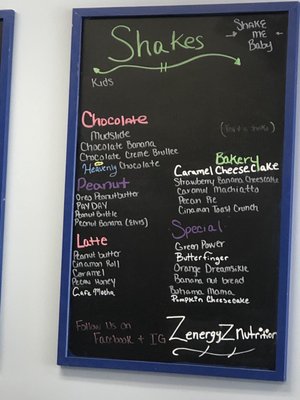 Shakes
SHAKE
ME
Baby
Kids
Chocolate
Mudslide
Chocolate Banana
Chocolate Creme Brullee
Heavenly Chocolate
Peanut
Oreo Peanutbutter
PAYDAY
Peanut Brittle
Peanut Banana (Elvis)
Latte
Peanut butter
Cinamon Roll
Caramel
Pecan Honey
Cafe Mocha
Bakery
Caramel Cheesecake
Strawberry Banana Cheesecake
Caramel Machiatto
Pecan Pie
Cinamon Toast Crunch
Special
Green Power
Butterfinger
Orange Dreamsikle
Banana nut bread
Bahama Mama
Pumpkin Cheesecake
Follow Us on
Facebook + IG
ZenergyZ Nutrition